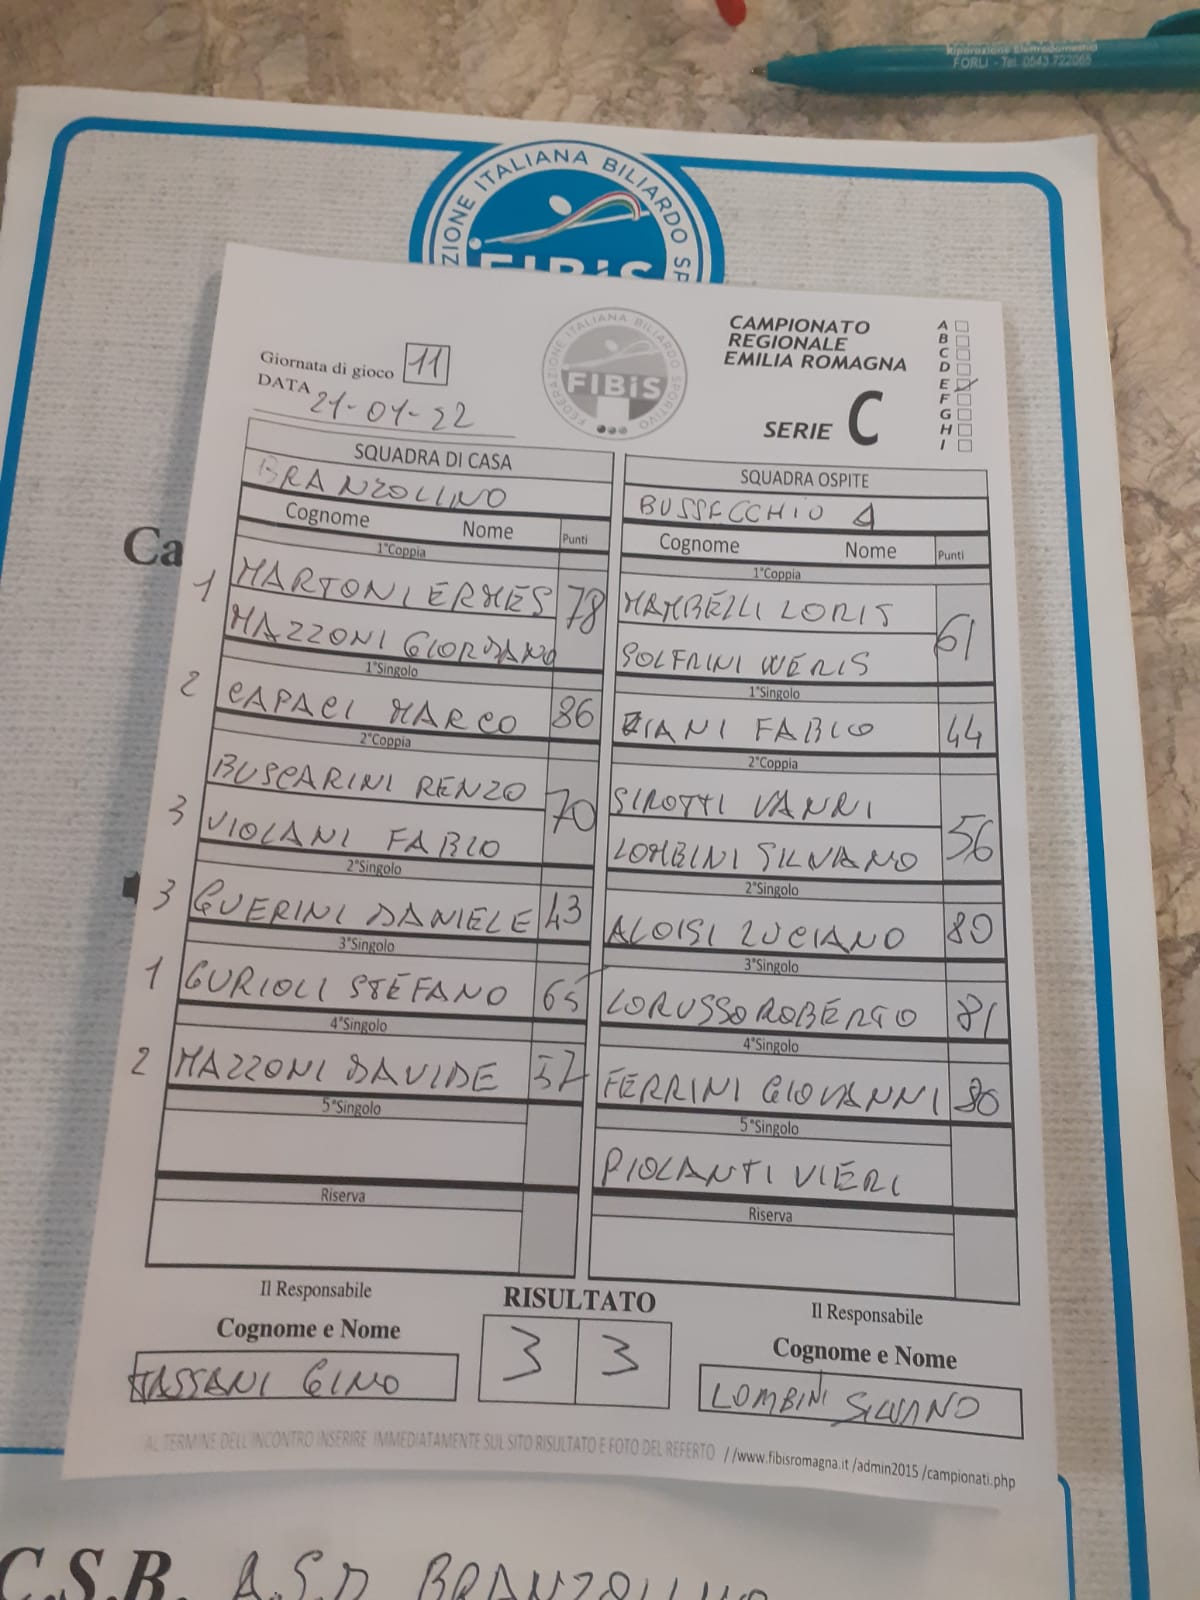 Riparazione Elettrodomestici
FORLI - Tel. 0543 722065
ZIONE ITALIANA BILIARDO SP
FIBiS
Giornata di gioco 11
DATA 21-01-22
FEDERAZIONE ITALIANA BILIARDO SPORTIVO
FIBiS
CAMPIONATO
REGIONALE
EMILIA ROMAGNA
SERIE C
A
B
C
D
E
F
G
H
I
SQUADRA DI CASA
BRANZOLINO
Cognome Nome Punti
1°Coppia
1 MARTONI ERMES 78
MAZZONI GIORDANO
1°Singolo
2 CAPACI MARCO 86
2°Coppia
BUSCARINI RENZO 70
3 VIOLANI FABIO
2°Singolo
3 GUERINI DANIELE 43
3°Singolo
1 GURIOLI STEFANO 65
4°Singolo
2 MAZZONI DAVIDE 57
5°Singolo
Riserva
SQUADRA OSPITE
BUSSECCHIO
Cognome Nome Punti
1°Coppia
MAMBELLI LORIS 61
SOLFRINI WERIS
1°Singolo
ZIANI FABIO 44
2°Coppia
SIROTTI VANRI 56
LOMBINI SILVANO
2°Singolo
ALOISI LUCIANO 80
3°Singolo
LORUSSO ROBERTO 81
4°Singolo
FERRINI GIOVANNI 80
5°Singolo
PIOLANTI VIERI
Riserva
Il Responsabile
Cognome e Nome
TASSANI GINO
RISULTATO
3 3
Il Responsabile
Cognome e Nome
LOMBINI SILVANO
AL TERMINE DELL'INCONTRO INSERIRE IMMEDIATAMENTE SUL SITO RISULTATO E FOTO DEL REFERTO //www.fibisromagna.it /admin2015 /campionati.php
Ca
C.S.B. A.S.D BRANZOLINO